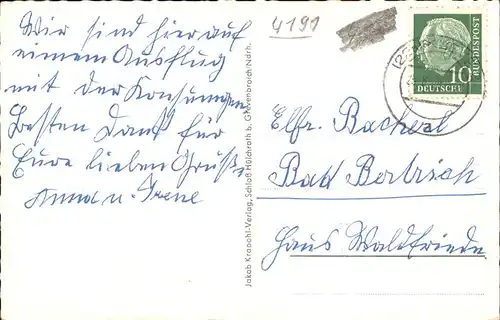 Wir sind hier auf
einem Ausflug
mit der
Besten Dank für
Eure lieben Grüße
Anna u. Irene
4191
Jakob Krapohl-Verlag, Schloß Hülchrath b. Grevenbroich Ndrh.
DEUTSCHE
BUNDESPOST
10
Elfr. Bacherl
Bad Bertrich
Haus Waldfriede